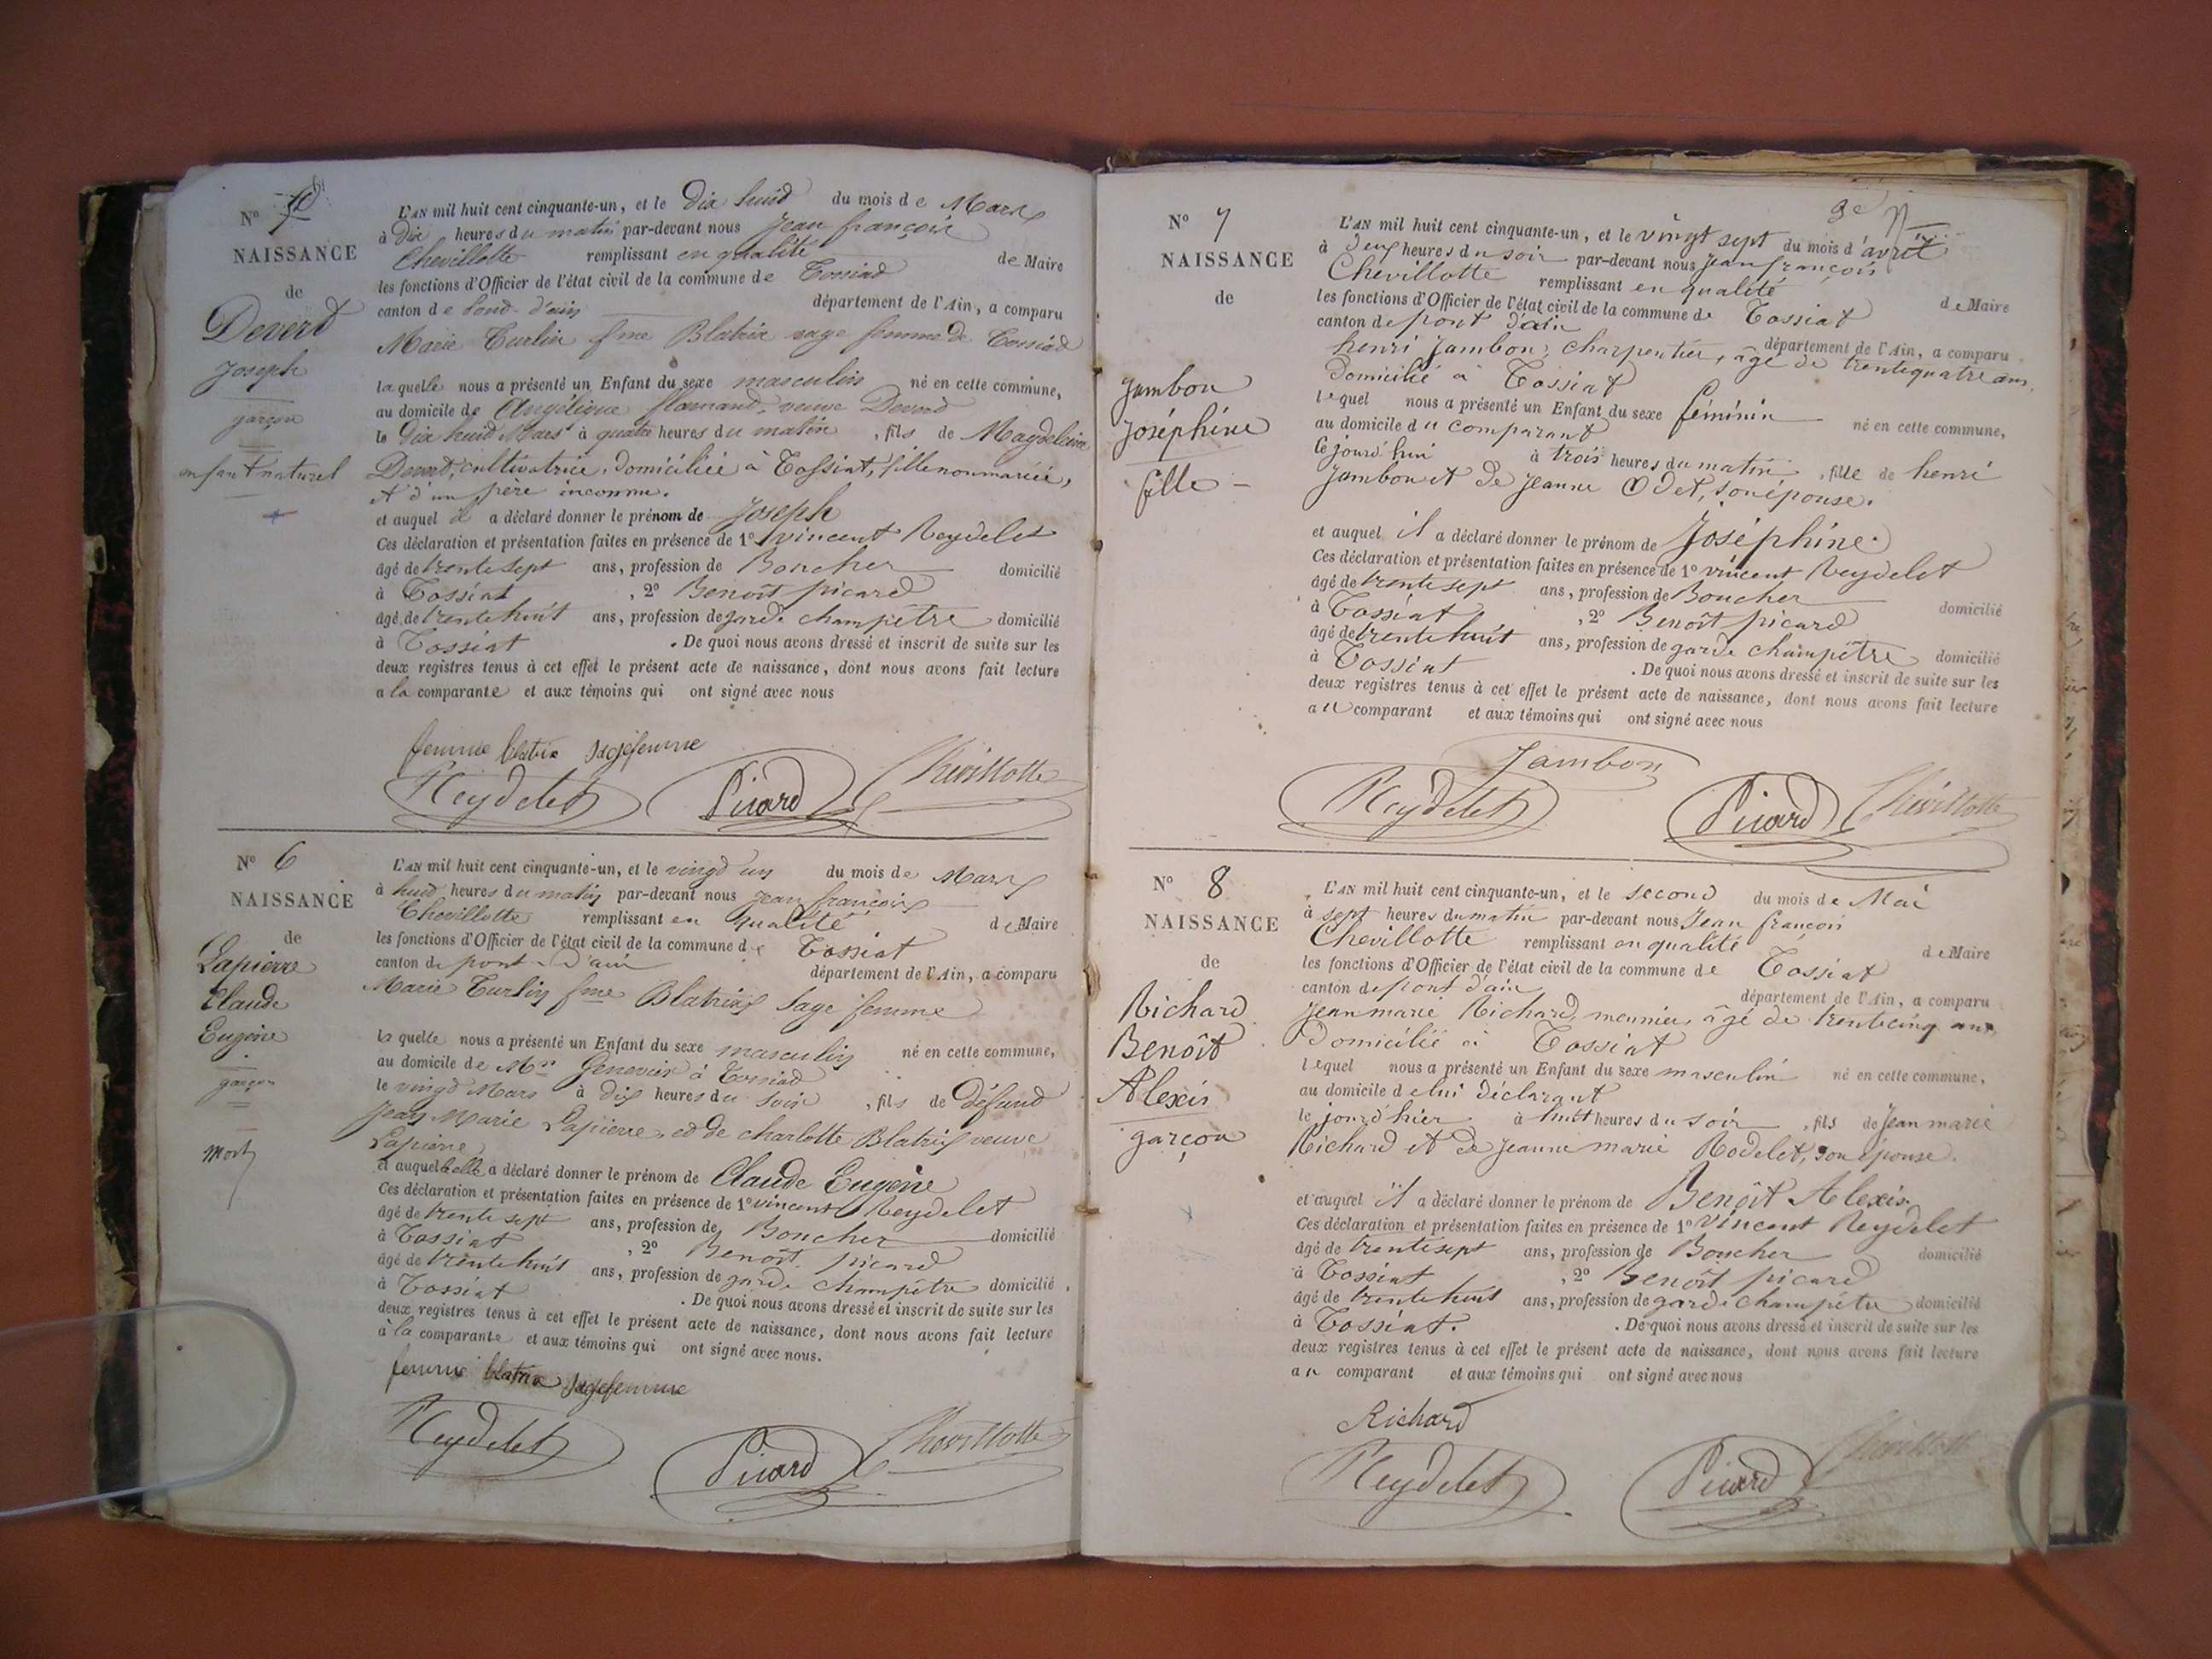 N°
NAISSANCE
de
Devert
Joseph
garçon
enfant naturel
L'AN mil huit cent cinquante-un, et le Dix huid du mois de Mars
à Dix heures du matin par-devant nous Jean françois
Chevillotte remplissant en qualité de Maire
les fonctions d'Officier de l'état civil de la commune de Tossiad
canton de Pond-d'ain département de l'Ain, a comparu
Marie Turlin fme Blatrix sage femme de Tossiad
laquelle nous a présenté un Enfant du sexe masculin né en cette commune,
au domicile de Angélique flamand, veuve Deverd
le Dix huid Mars à quatre heures du matin, fils de Magdeleine
Devert, cultivatrice, domiciliée à Tossiat, fille non mariée,
et d'un père inconnu.
et auquel il a déclaré donner le prénom de Joseph
Ces déclaration et présentation faites en présence de 1° vincent Reydelet
âgé de trente sept ans, profession de Boucher domicilié
à Tossiat, 2° Benoît picard
âgé de trente huit ans, profession de garde champêtre domicilié
à Tossiat. De quoi nous avons dressé et inscrit de suite sur les
deux registres tenus à cet effet le présent acte de naissance, dont nous avons fait lecture
a la comparante et aux témoins qui ont signé avec nous
femme blatrix sagefemme
Reydelet Picard Chevillotte
N° 6
NAISSANCE
de
Lapierre
Claude
Eugène
garçon
mort
L'AN mil huit cent cinquante-un, et le vingd un du mois de Mars
à huid heures du matin par-devant nous Jean françois
Chevillotte remplissant en qualité de Maire
les fonctions d'Officier de l'état civil de la commune de Tossiat
canton de pont-d'ain département de l'Ain, a comparu
Marie Turlin fme Blatrix Sage femme
laquelle nous a présenté un Enfant du sexe masculin né en cette commune,
au domicile de Mr à Tossiad
le vingd Mars à dix heures du soir, fils de défund
Jean Marie Lapierre, ed de charlotte Blatrix veuve
Lapierre
et auquel elle a déclaré donner le prénom de Claude Eugène
Ces déclaration et présentation faites en présence de 1° vincent Reydelet
âgé de trente sept ans, profession de Boucher domicilié
à Tossiat, 2° Benoît picard
âgé de trente huit ans, profession de garde champêtre domicilié
à Tossiat. De quoi nous avons dressé et inscrit de suite sur les
deux registres tenus à cet effet le présent acte de naissance, dont nous avons fait lecture
à la comparante et aux témoins qui ont signé avec nous.
femme blatrix sagefemme
Reydelet Picard Chevillotte
N° 7
NAISSANCE
de
Jambon
Joséphine
fille
L'AN mil huit cent cinquante-un, et le vingt sept du mois d'avril
à deux heures du soir par-devant nous Jean françois
Chevillotte remplissant en qualité de Maire
les fonctions d'Officier de l'état civil de la commune de Tossiat
canton de pont d'ain département de l'Ain, a comparu
henri Jambon, charpentier, âgé de trente quatre ans,
Domicilié à Tossiat
lequel nous a présenté un Enfant du sexe féminin né en cette commune,
au domicile du comparant
le jourd'hui à trois heures du matin, fille de henri
Jambon et de Jeanne Odet, son épouse.
et auquel il a déclaré donner le prénom de Joséphine
Ces déclaration et présentation faites en présence de 1° vincent Reydelet
âgé de trente sept ans, profession de Boucher domicilié
à Tossiat, 2° Benoît picard
âgé de trente huit ans, profession de garde champêtre domicilié
à Tossiat. De quoi nous avons dressé et inscrit de suite sur les
deux registres tenus à cet effet le présent acte de naissance, dont nous avons fait lecture
au comparant et aux témoins qui ont signé avec nous
Jambon
Reydelet Picard Chevillotte
N° 8
NAISSANCE
de
Richard
Benoît
Alexis
garçon
L'AN mil huit cent cinquante-un, et le second du mois de Mai
à sept heures du matin par-devant nous Jean françois
Chevillotte remplissant en qualité de Maire
les fonctions d'Officier de l'état civil de la commune de Tossiat
canton de pont d'ain département de l'Ain, a comparu
Jean marie Richard, meunier, âgé de trente cinq ans,
Domicilié à Tossiat
lequel nous a présenté un Enfant du sexe masculin né en cette commune,
au domicile de lui Déclarant
le jourd'hier à huit heures du soir, fils de Jean marie
Richard et de Jeanne marie Rodelet, son épouse.
et auquel il a déclaré donner le prénom de Benoît Alexis
Ces déclaration et présentation faites en présence de 1° Vincent Reydelet
âgé de trente sept ans, profession de Boucher domicilié
à Tossiat, 2° Benoît picard
âgé de trente huit ans, profession de garde champêtre domicilié
à Tossiat. De quoi nous avons dressé et inscrit de suite sur les
deux registres tenus à cet effet le présent acte de naissance, dont nous avons fait lecture
au comparant et aux témoins qui ont signé avec nous
Richard
Reydelet Picard Chevillotte